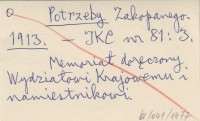 Potrzeby Zakopanego.
1913. – IKC nr 81: 3.
Memoriał doręczony
Wydziałowi Krajowemu i
namiestnikowi.